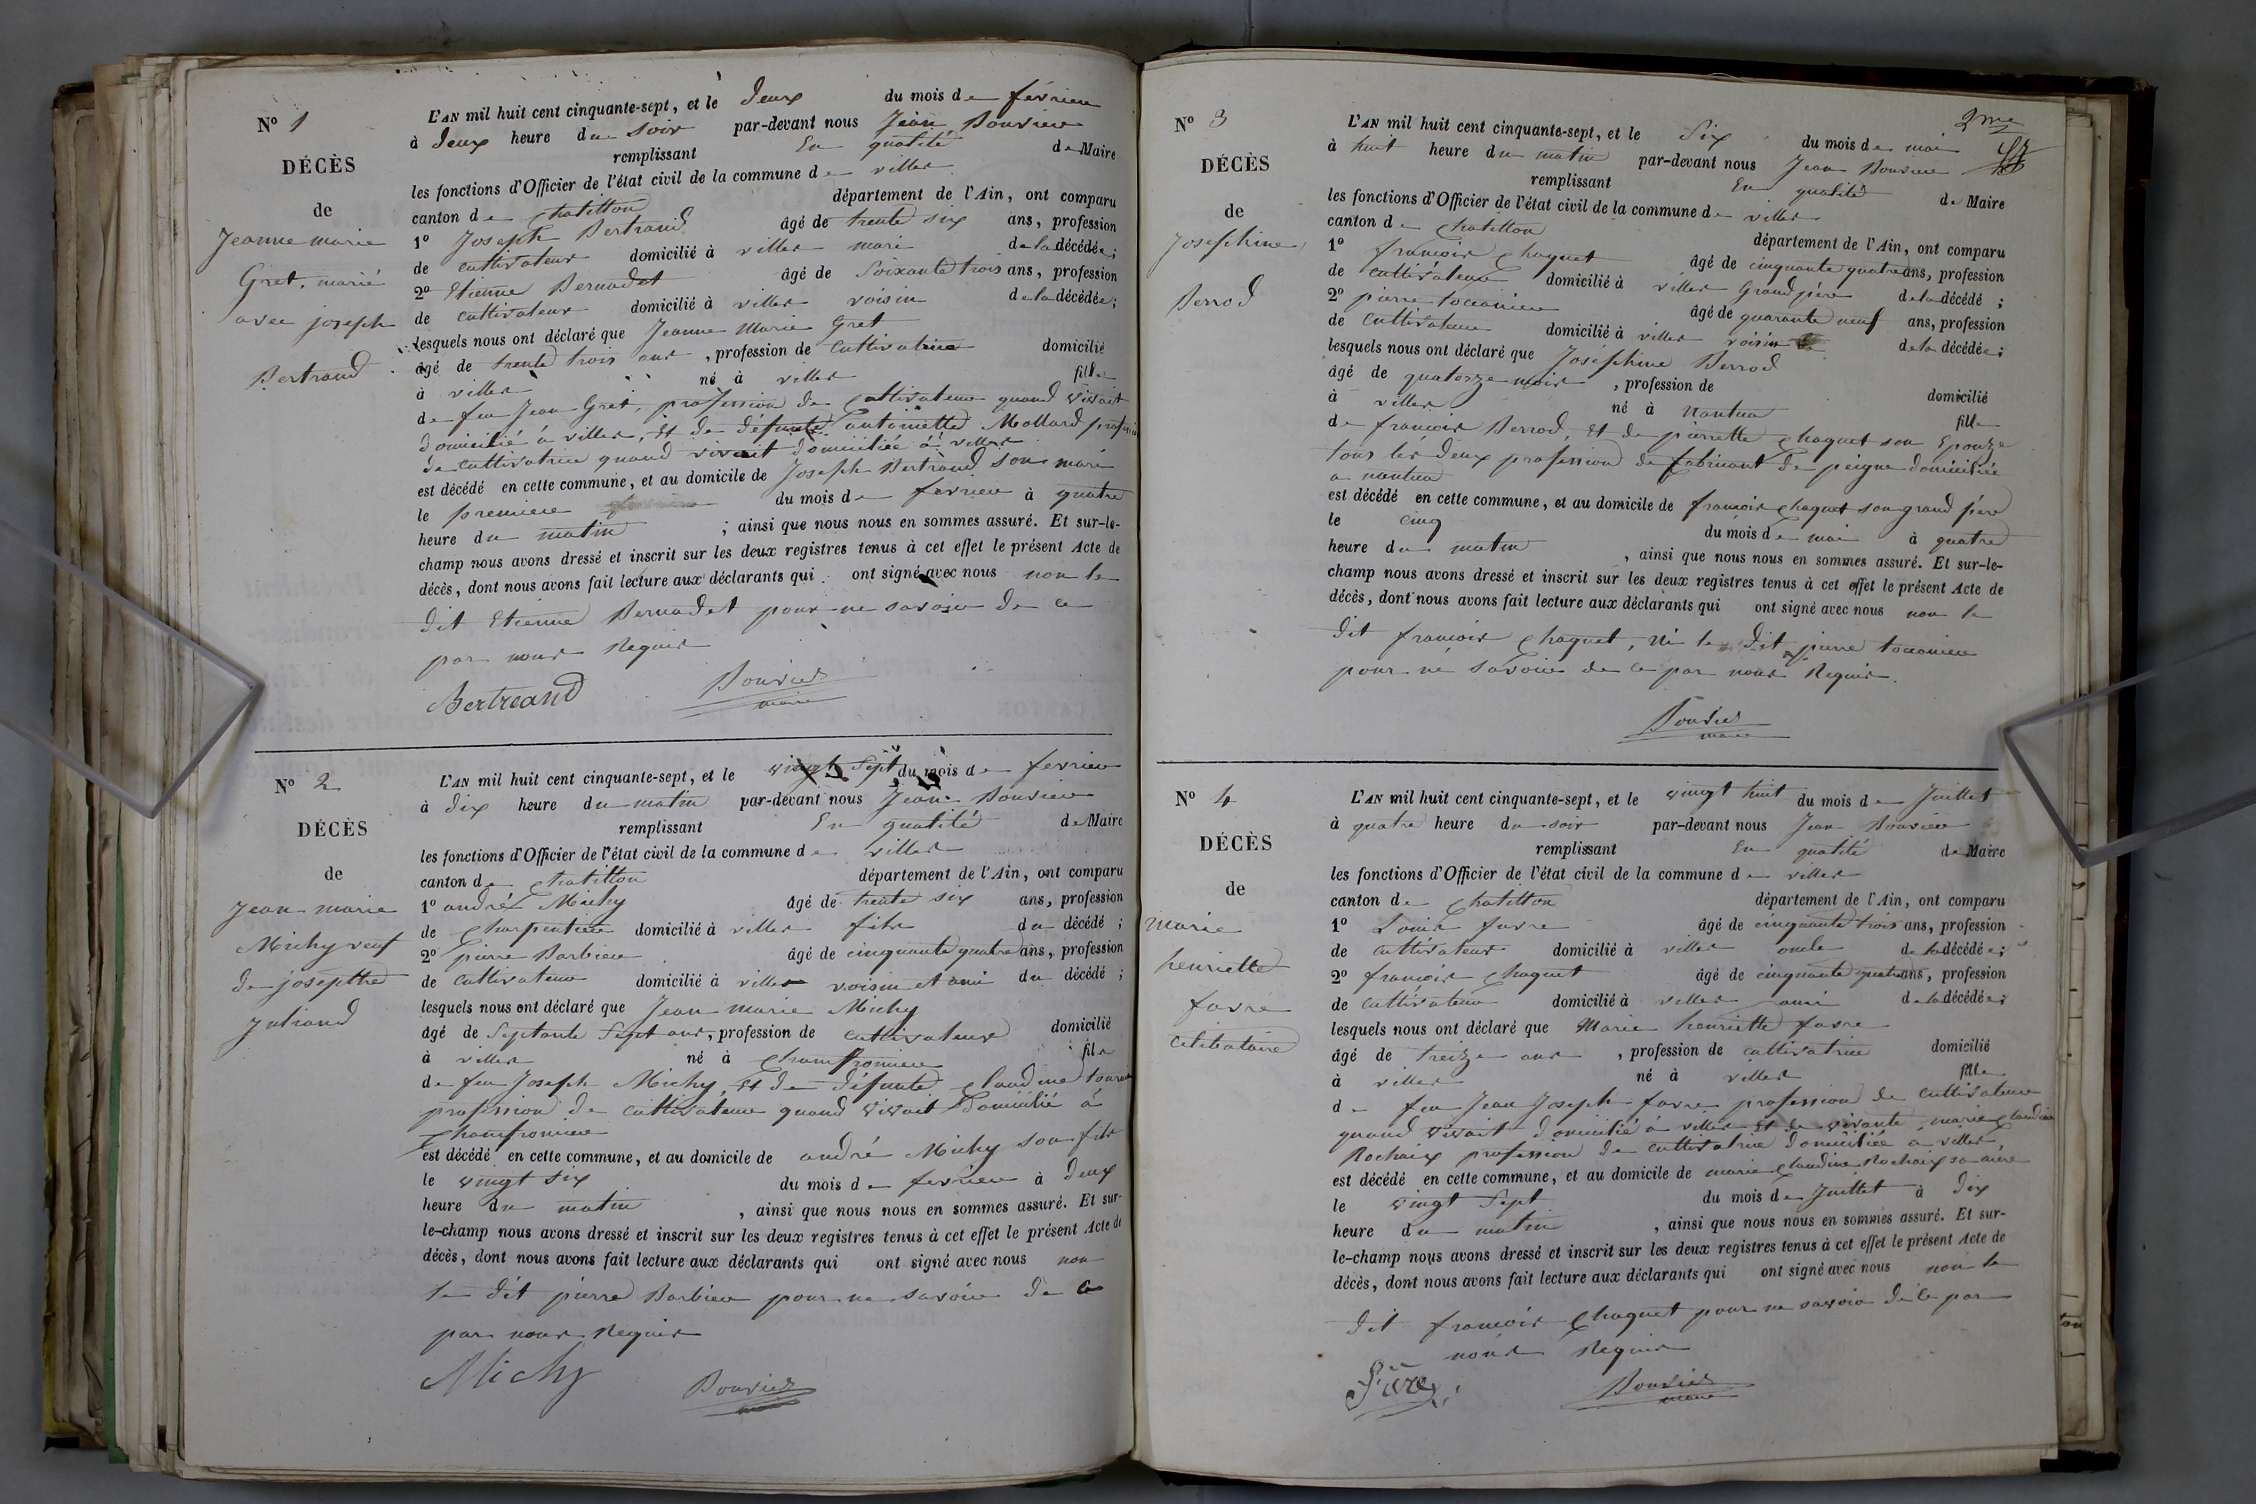 N° 1
DÉCÈS
de
Jeanne marie
Gret, marié
avec joseph
Bertrand
L'AN mil huit cent cinquante-sept, et le deux du mois de fevrier
à deux heure du soir par-devant nous Jean Bouvier
remplissant En qualité de Maire
les fonctions d'Officier de l'état civil de la commune de villes
canton de Chatillon département de l'Ain, ont comparu
1° Joseph Bertrand âgé de trente six ans, profession
de cultivateur domicilié à villes mari de la décédée;
2° Etienne Bernadet âgé de Soixante trois ans, profession
de cultivateur domicilié à villes voisin de la décédée;
lesquels nous ont déclaré que Jeanne Marie Gret
âgé de trente trois ans, profession de cultivatrice domicilié
à villes né à villes fille
de feu Jean Gret, profession de cultivateur quand vivait
domicilié à villes, et de défunte antoinette Mollard profession
de cultivatrice quand vivait domiciliée à villes
est décédé en cette commune, et au domicile de Joseph Bertrand son mari
le premiere du mois de fevrier à quatre
heure du matin ; ainsi que nous nous en sommes assuré. Et sur-le-
champ nous avons dressé et inscrit sur les deux registres tenus à cet effet le présent Acte de
décès, dont nous avons fait lecture aux déclarants qui ont signé avec nous non le
dit Etienne Bernadet pour ne savoir de ce
par nous Requis
Bertreand Bouvier
maire
N° 2
DÉCÈS
de
Jean marie
Michy veuf
de josepthe
Juliand
L'AN mil huit cent cinquante-sept, et le vingt Sept du mois de fevrier
à dix heure du matin par-devant nous Jean Bouvier
remplissant En qualité de Maire
les fonctions d'Officier de l'état civil de la commune de villes
canton de Chatillon département de l'Ain, ont comparu
1° andré Michy âgé de trente six ans, profession
de Charpentier domicilié à villes fils du décédé ;
2° pierre Barbier âgé de cinquante quatre ans, profession
de cultivateur domicilié à villes voisin et ami du décédé ;
lesquels nous ont déclaré que Jean marie Michy
âgé de Septante Sept ans, profession de cultivateur domicilié
à villes né à Champfromier fils
de feu Joseph Michy, Et de défunte Claudine
profession de cultivateur quand vivait Domicilié à
Champfromier
est décédé en cette commune, et au domicile de andré Michy son fils
le vingt six du mois de fevrier à deux
heure du matin , ainsi que nous nous en sommes assuré. Et sur-
le-champ nous avons dressé et inscrit sur les deux registres tenus à cet effet le présent Acte de
décès, dont nous avons fait lecture aux déclarants qui ont signé avec nous non
le dit pierre Barbier pour ne savoir de ce
par nous Requis
Michy Bouvier
maire
2me
N° 3
DÉCÈS
de
Josephine
Berrod
L'AN mil huit cent cinquante-sept, et le Six du mois de mai
à huit heure du matin par-devant nous Jean Bouvier
remplissant En qualité de Maire
les fonctions d'Officier de l'état civil de la commune de villes
canton de Chatillon département de l'Ain, ont comparu
1° françois Chaquet âgé de cinquante quatre ans, profession
de cultivateur domicilié à villes Grand père de la décédé ;
2° pierre tocanier âgé de quarante neuf ans, profession
de cultivateur domicilié à villes voisin de la décédée;
lesquels nous ont déclaré que Josephine Berrod
âgé de quatorze mois , profession de domicilié
à villes né à Nantua fille
de françois Berrod, et de pierrette Chaquet son Epouze
tous les deux profession de fabricant de peigne domiciliée
a nantua
est décédé en cette commune, et au domicile de françois Chaquet son grand père
le cinq du mois de mai à quatre
heure du matin , ainsi que nous nous en sommes assuré. Et sur-le-
champ nous avons dressé et inscrit sur les deux registres tenus à cet effet le présent Acte de
décès, dont nous avons fait lecture aux déclarants qui ont signé avec nous non le
dit françois Chaquet, Ni le dit pierre tocanier
pour ne savoir de ce par nous Requis.
Bouvier
maire
N° 4
DÉCÈS
de
marie
henriette
favre
célibataire
L'AN mil huit cent cinquante-sept, et le vingt huit du mois de Juillet
à quatre heure du soir par-devant nous Jean Bouvier
remplissant En qualité de Maire
les fonctions d'Officier de l'état civil de la commune de villes
canton de Chatillon département de l'Ain, ont comparu
1° Louis favre âgé de cinquante trois ans, profession
de cultivateur domicilié à villes oncle de la décédée;
2° françois Chaquet âgé de cinquante quatre ans, profession
de cultivateur domicilié à villes ami de la décédée;
lesquels nous ont déclaré que Marie henriette favre
âgé de treize ans , profession de cultivatrice domicilié
à villes né à villes fille
de feu Jean Joseph favre profession de cultivateur
quand vivait domicilié à villes et de vivante marie Claudine
Rochaix profession de cultivatrice domiciliée à villes,
est décédé en cette commune, et au domicile de marie Claudine Rochaix sa mère
le vingt Sept du mois de Juillet à dix
heure du matin , ainsi que nous nous en sommes assuré. Et sur-
le-champ nous avons dressé et inscrit sur les deux registres tenus à cet effet le présent Acte de
décès, dont nous avons fait lecture aux déclarants qui ont signé avec nous non le
dit françois Chaquet pour ne savoir de ce par
nous Requis
Bouvier
maire